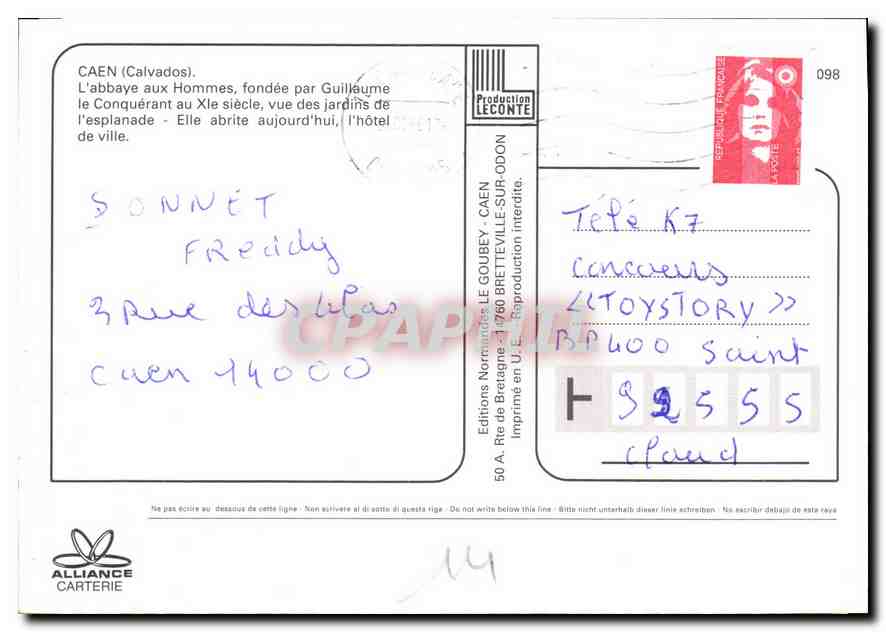 CAEN (Calvados).
L'abbaye aux Hommes, fondée par Guillaume
le Conquérant au XIe siècle, vue des jardins de
l'esplanade - Elle abrite aujourd'hui, l'hôtel
de ville.
BONNET
FReddy
3 Rue des lilas
Caen 14000
Production
LECONTE
Editions Normandes LE GOUBEY - CAEN
50 A. Rte de Bretagne - 14760 BRETTEVILLE-SUR-ODON
Imprimé en U. E. - Reproduction interdite.
REPUBLIQUE FRANÇAISE
LA POSTE
098
Télé K7
Concours
<<TOYSTORY>>
BP 400 Saint
92555
Cloud
CPAPHIL
Ne pas écrire au dessous de cette ligne - Non scrivere al di sotto di questa riga - Do not write below this line - Bitte nicht unterhalb dieser linie schreiben - No escribir debajo de esta raya
ALLIANCE
CARTERIE
14